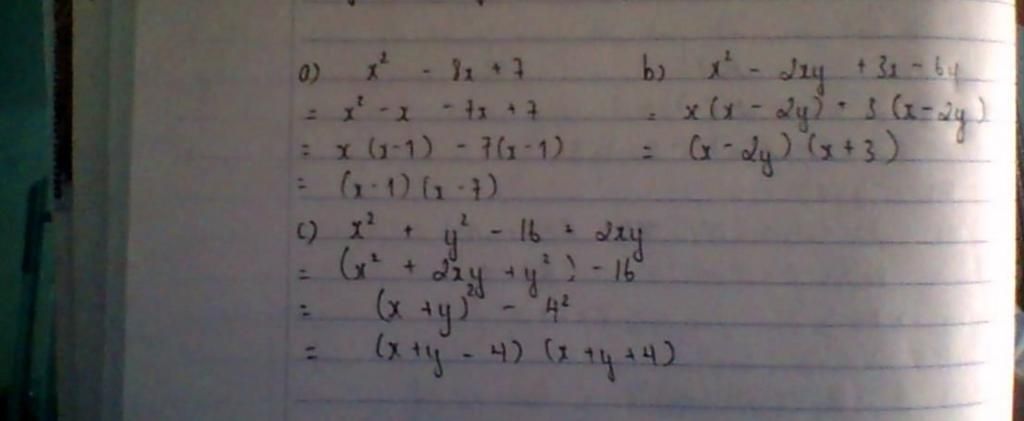 a) x² - 8x + 7
= x² - x - 7x + 7
= x (x-1) - 7(x-1)
= (x-1) (x-7)
b) x² - 2xy + 3x - 6y
= x (x - 2y) + 3 (x-2y)
= (x-2y) (x+3)
c) x² + y² - 16 + 2xy
= (x² + 2xy + y²) - 16
= (x +y)² - 4²
= (x+y - 4) (x +y +4)